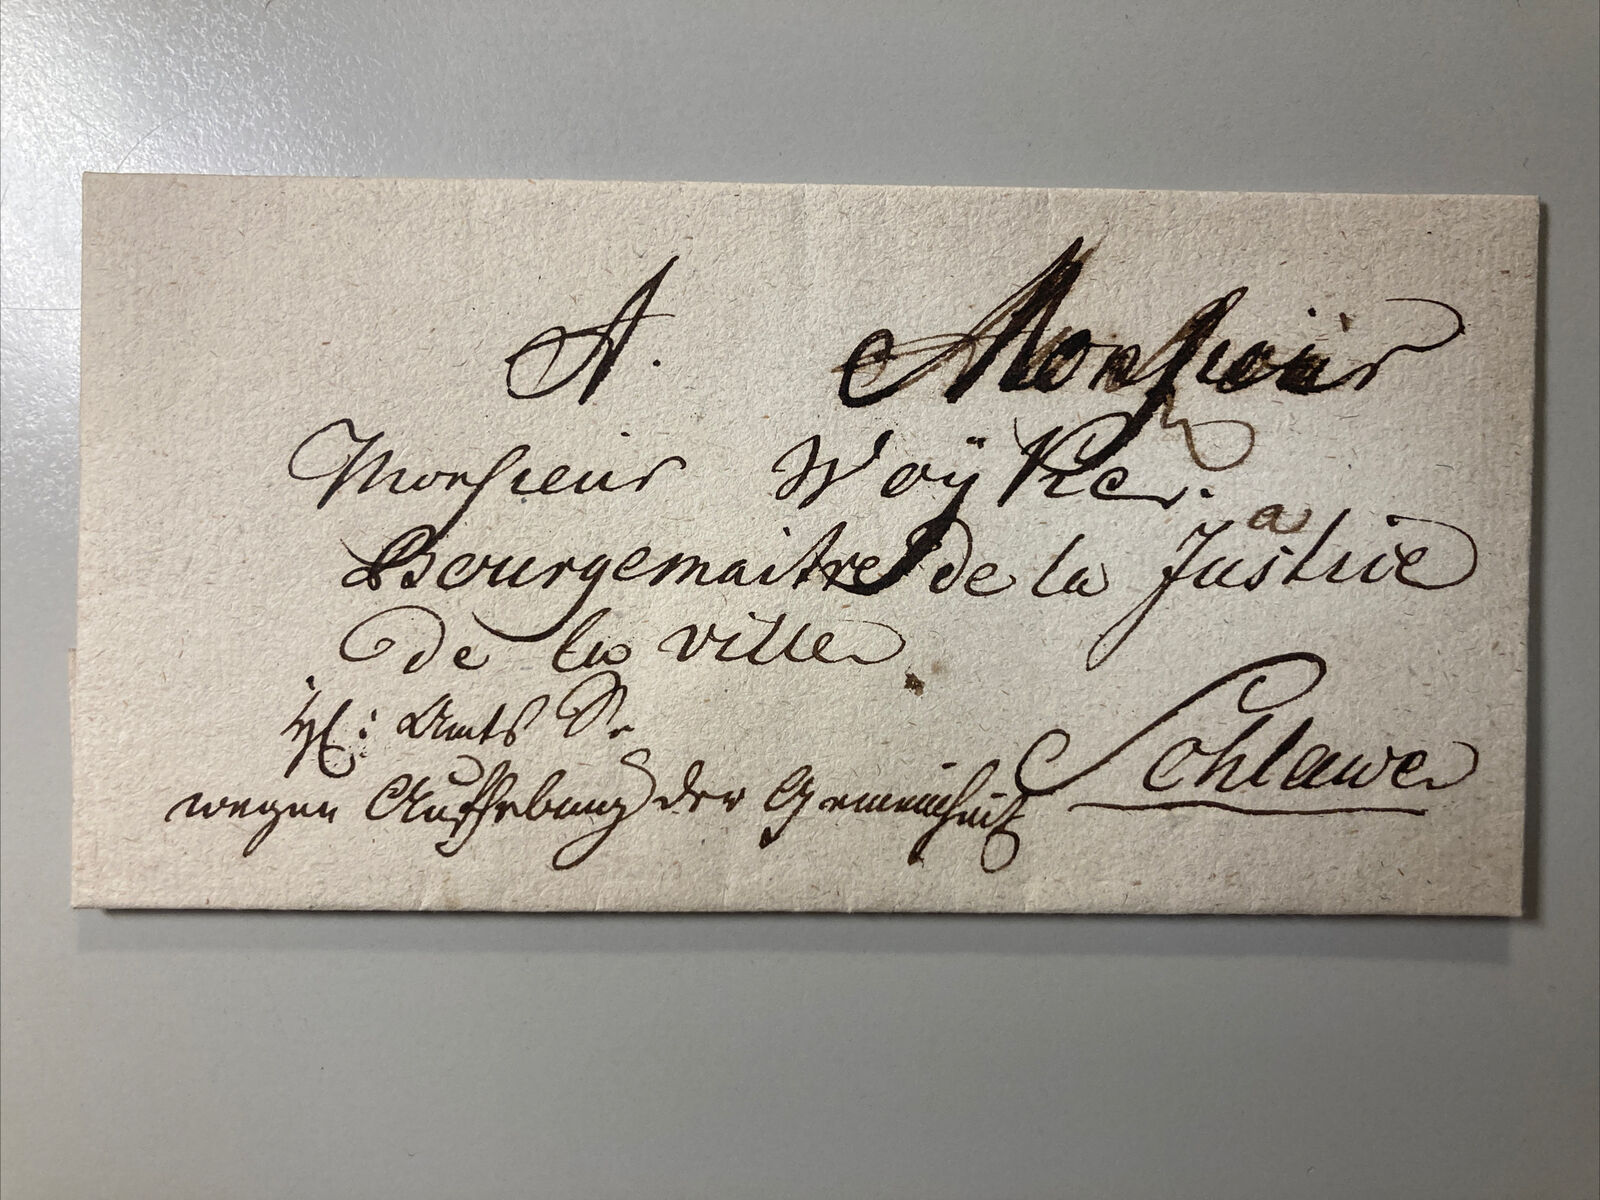 A. Monsieur
Monsieur Woÿke.
Bourgemaitre de la Justice
a
de la ville
Amts S.
Schlawe
wegen Aufhebung der Gemeinheit